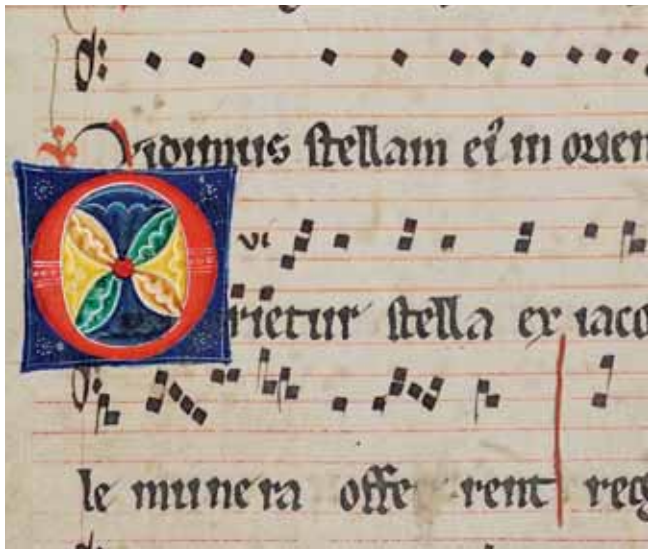 Vidimus stellam ei in orien
vi
Orietur stella ex iaco
le munera offe rent reg